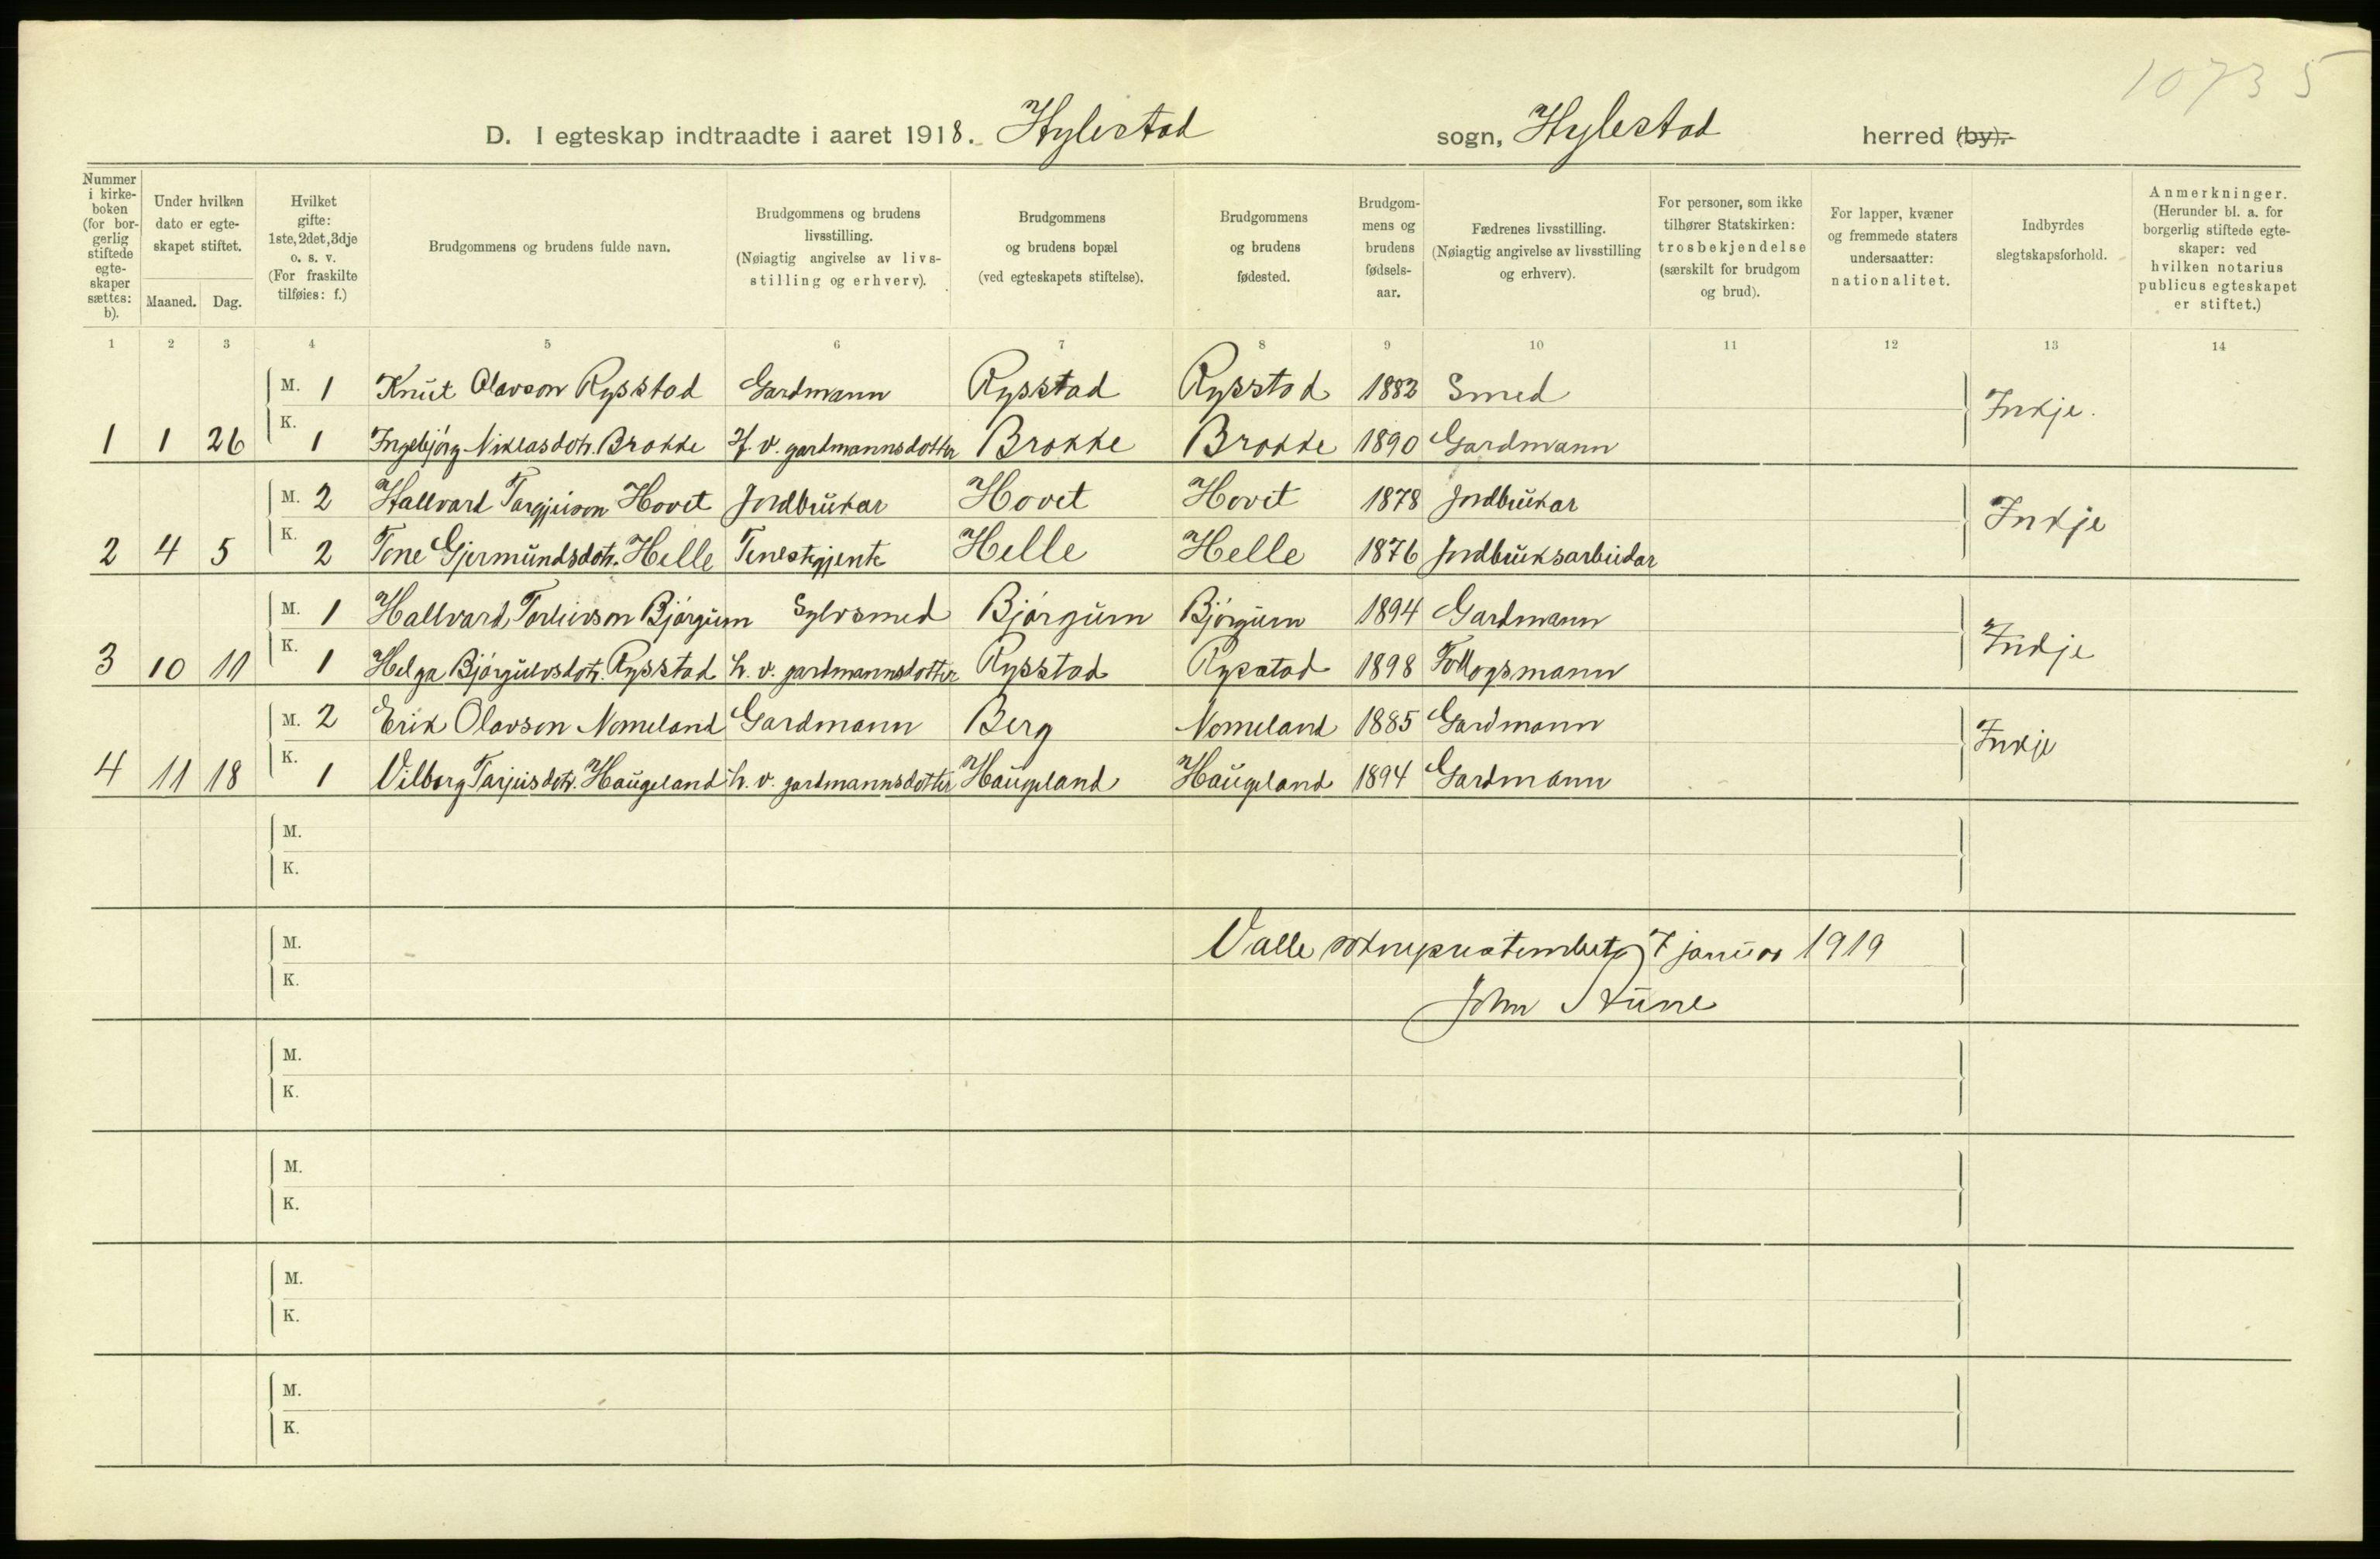 10735
D. I egteskap indtraadte i aaret 1918. Hylestad sogn, Hylestad herred (by).
Nummer i kirkeboken (for borgerlig stiftede egteskaper sættes: b).
Under hvilken dato er egteskapet stiftet.
Maaned. Dag.
Hvilket gifte: 1ste, 2det, 3dje o. s. v. (For fraskilte tilføies: f.)
Brudgommens og brudens fulde navn.
Brudgommens og brudens livsstilling. (Nøiagtig angivelse av livsstilling og erhverv).
Brudgommens og brudens bopæl (ved egteskapets stiftelse).
Brudgommens og brudens fødested.
Brudgommens og brudens fødselsaar.
Fædrenes livsstilling. (Nøiagtig angivelse av livsstilling og erhverv).
For personer, som ikke tilhører Statskirken: trosbekjendelse (særskilt for brudgom og brud).
For lapper, kvæner og fremmede staters undersaatter: nationalitet.
Indbyrdes slegtskapsforhold.
Anmerkninger. (Herunder bl. a. for borgerlig stiftede egteskaper: ved hvilken notarius publicus egteskapet er stiftet.)
1 2 3 4 5 6 7 8 9 10 11 12 13 14
M. 1 Knut Olavson Rysstad Gardmann Rysstad Rysstad 1882 Smed Inkje.
1 1 26 K. 1 Ingebjörg Niklasdotr. Brokke H. v. gardmannsdotter Brokke Brokke 1890 Gardmann
M. 2 Hallvard Targjeison Hovet Jordbrukar Hovet Hovet 1878 Jordbrukar Inkje
2 4 5 K. 2 Tone Gjermundsdotr. Helle Tenestgjente Helle Helle 1876 Jordbruksarbeidar
M. 1 Hallvard Torleivson Bjørgum Sylvsmed Bjørgum Bjørgum 1894 Gardmann Inkje
3 10 11 K. 1 Helga Bjørgulvsdotr. Rysstad h. v. gardmannsdotter Rysstad Rysstad 1898 Follogsmann
M. 2 Erik Olavson Nomeland Gardmann Berg Nomeland 1885 Gardmann Inkje
4 11 18 K. 1 Vilborg Tarjeisdotr. Haugeland h. v. gardmannsdotter Haugeland Haugeland 1894 Gardmann
M.
K.
M. Valle sokneprestembet 7 januar 1919
K. John
M.
K.
M.
K.
M.
K.
M.
K.